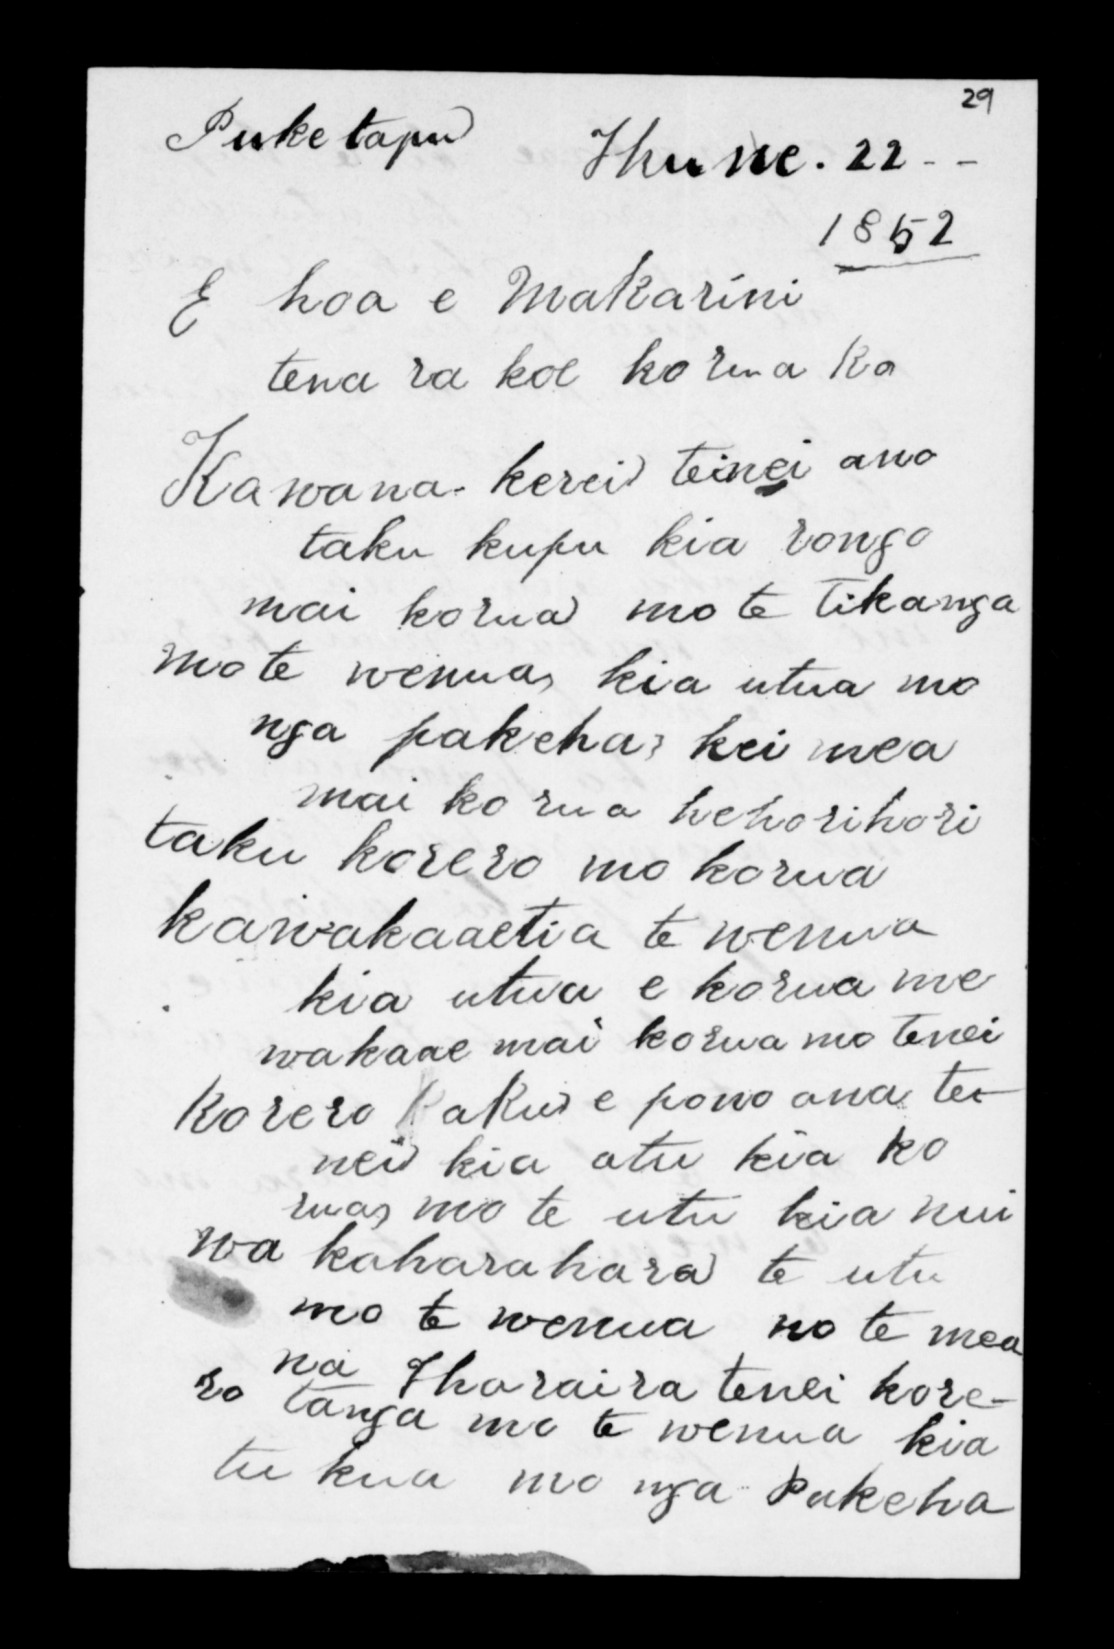 29
Puketapu
Hune. 22 - -
1852
E hoa e Makarini
tena ra koe korua ko
Kawana. kerei teinei ano
taku kupu kia rongo
mai korua mo te Tikanga
mo te wenua, kia utua mo
nga pakeha, kei mea
mai korua hehorihori
taku korero mo korua
kawakaaetia te wenua
kia utua e korua me
wakaae mai korua mo tenei
Korero kaku e pono ana te-
nei kia atu kia ko
rua, mo te utu kia nui
wa kaharahara te utu
mo te wenua no te mea
na Tharaira tenei kore-
ro tanga mo te wenua kia
tukua mo nga Pakeha